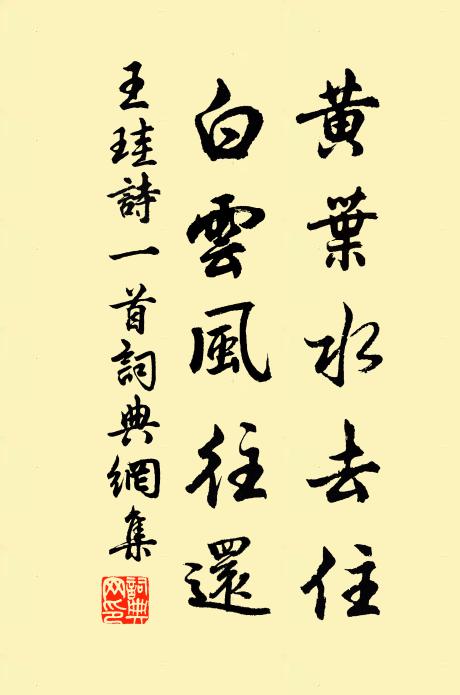 黃葉水去住
白雲風往還
王珪詩一首詞典網集
詞典網印